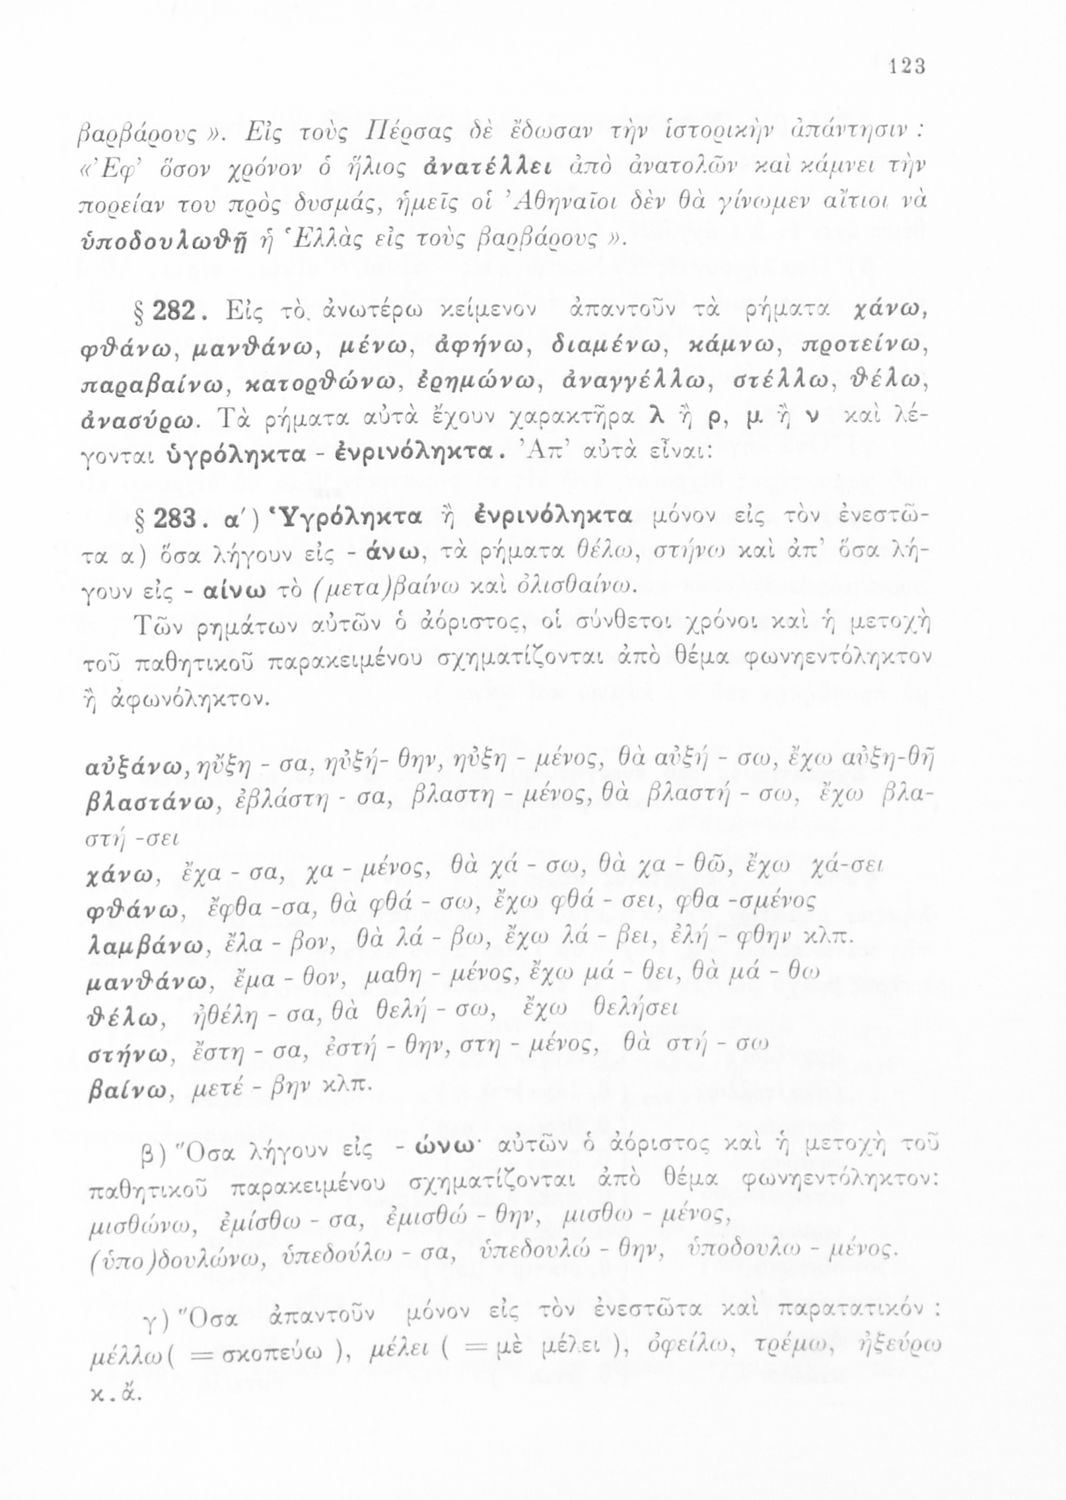 123
βαρβάρους ». Εἰς τοὺς Πέρσας δὲ ἔδωσαν τὴν ἱστορικὴν ἀπάντησιν :
«Ἐφ' ὅσον χρόνον ὁ ἥλιος ἀνατέλλει ἀπὸ ἀνατολῶν καὶ κάμνει τὴν
πορείαν του πρὸς δυσμάς, ἡμεῖς οἱ Ἀθηναῖοι δὲν θὰ γίνωμεν αἴτιοι νὰ
ὑποδουλωθῇ ἡ Ἑλλὰς εἰς τοὺς βαρβάρους ».
§ 282. Εἰς τὸ ἀνωτέρω κείμενον ἀπαντοῦν τὰ ρήματα χάνω,
φθάνω, μανθάνω, μένω, ἀφήνω, διαμένω, κάμνω, προτείνω,
παραβαίνω, κατορθώνω, ἐρημώνω, ἀναγγέλλω, στέλλω, θέλω,
ἀνασύρω. Τὰ ρήματα αὐτὰ ἔχουν χαρακτῆρα λ ἢ ρ, μ ἢ ν καὶ λέ-
γονται ὑγρόληκτα - ἐνρινόληκτα. Ἀπ' αὐτὰ εἶναι:
§ 283. α') Ὑγρόληκτα ἢ ἐνρινόληκτα μόνον εἰς τὸν ἐνεστῶ-
τα α) ὅσα λήγουν εἰς - άνω, τὰ ρήματα θέλω, στήνω καὶ ἀπ' ὅσα λή-
γουν εἰς - αίνω τὸ (μετα)βαίνω καὶ ὀλισθαίνω.
Τῶν ρημάτων αὐτῶν ὁ ἀόριστος, οἱ σύνθετοι χρόνοι καὶ ἡ μετοχὴ
τοῦ παθητικοῦ παρακειμένου σχηματίζονται ἀπὸ θέμα φωνηεντόληκτον
ἢ ἀφωνόληκτον.
αὐξάνω, ηὔξη - σα, ηὐξή- θην, ηὐξη - μένος, θὰ αὐξή - σω, ἔχω αὐξη-θῆ
βλαστάνω, ἐβλάστη - σα, βλαστη - μένος, θὰ βλαστή - σω, ἔχω βλα-
στή -σει
χάνω, ἔχα - σα, χα - μένος, θὰ χά - σω, θὰ χα - θῶ, ἔχω χά-σει
φθάνω, ἔφθα -σα, θὰ φθά - σω, ἔχω φθά - σει, φθα -σμένος
λαμβάνω, ἔλα - βον, θὰ λά - βω, ἔχω λά - βει, ἐλή - φθην κλπ.
μανθάνω, ἔμα - θον, μαθη - μένος, ἔχω μά - θει, θὰ μά - θω
θέλω, ἠθέλη - σα, θὰ θελή - σω, ἔχω θελήσει
στήνω, ἔστη - σα, ἐστή - θην, στη - μένος, θὰ στή - σω
βαίνω, μετέ - βην κλπ.
β) Ὅσα λήγουν εἰς - ώνω· αὐτῶν ὁ ἀόριστος καὶ ἡ μετοχὴ τοῦ
παθητικοῦ παρακειμένου σχηματίζονται ἀπὸ θέμα φωνηεντόληκτον:
μισθώνω, ἐμίσθω - σα, ἐμισθώ - θην, μισθω - μένος,
(ὑπο)δουλώνω, ὑπεδούλω - σα, ὑπεδουλώ - θην, ὑποδουλω - μένος.
γ) Ὅσα ἀπαντοῦν μόνον εἰς τὸν ἐνεστῶτα καὶ παρατατικόν :
μέλλω( = σκοπεύω ), μέλει ( = μὲ μέλει ), ὀφείλω, τρέμω, ἠξεύρω
κ.ἄ.